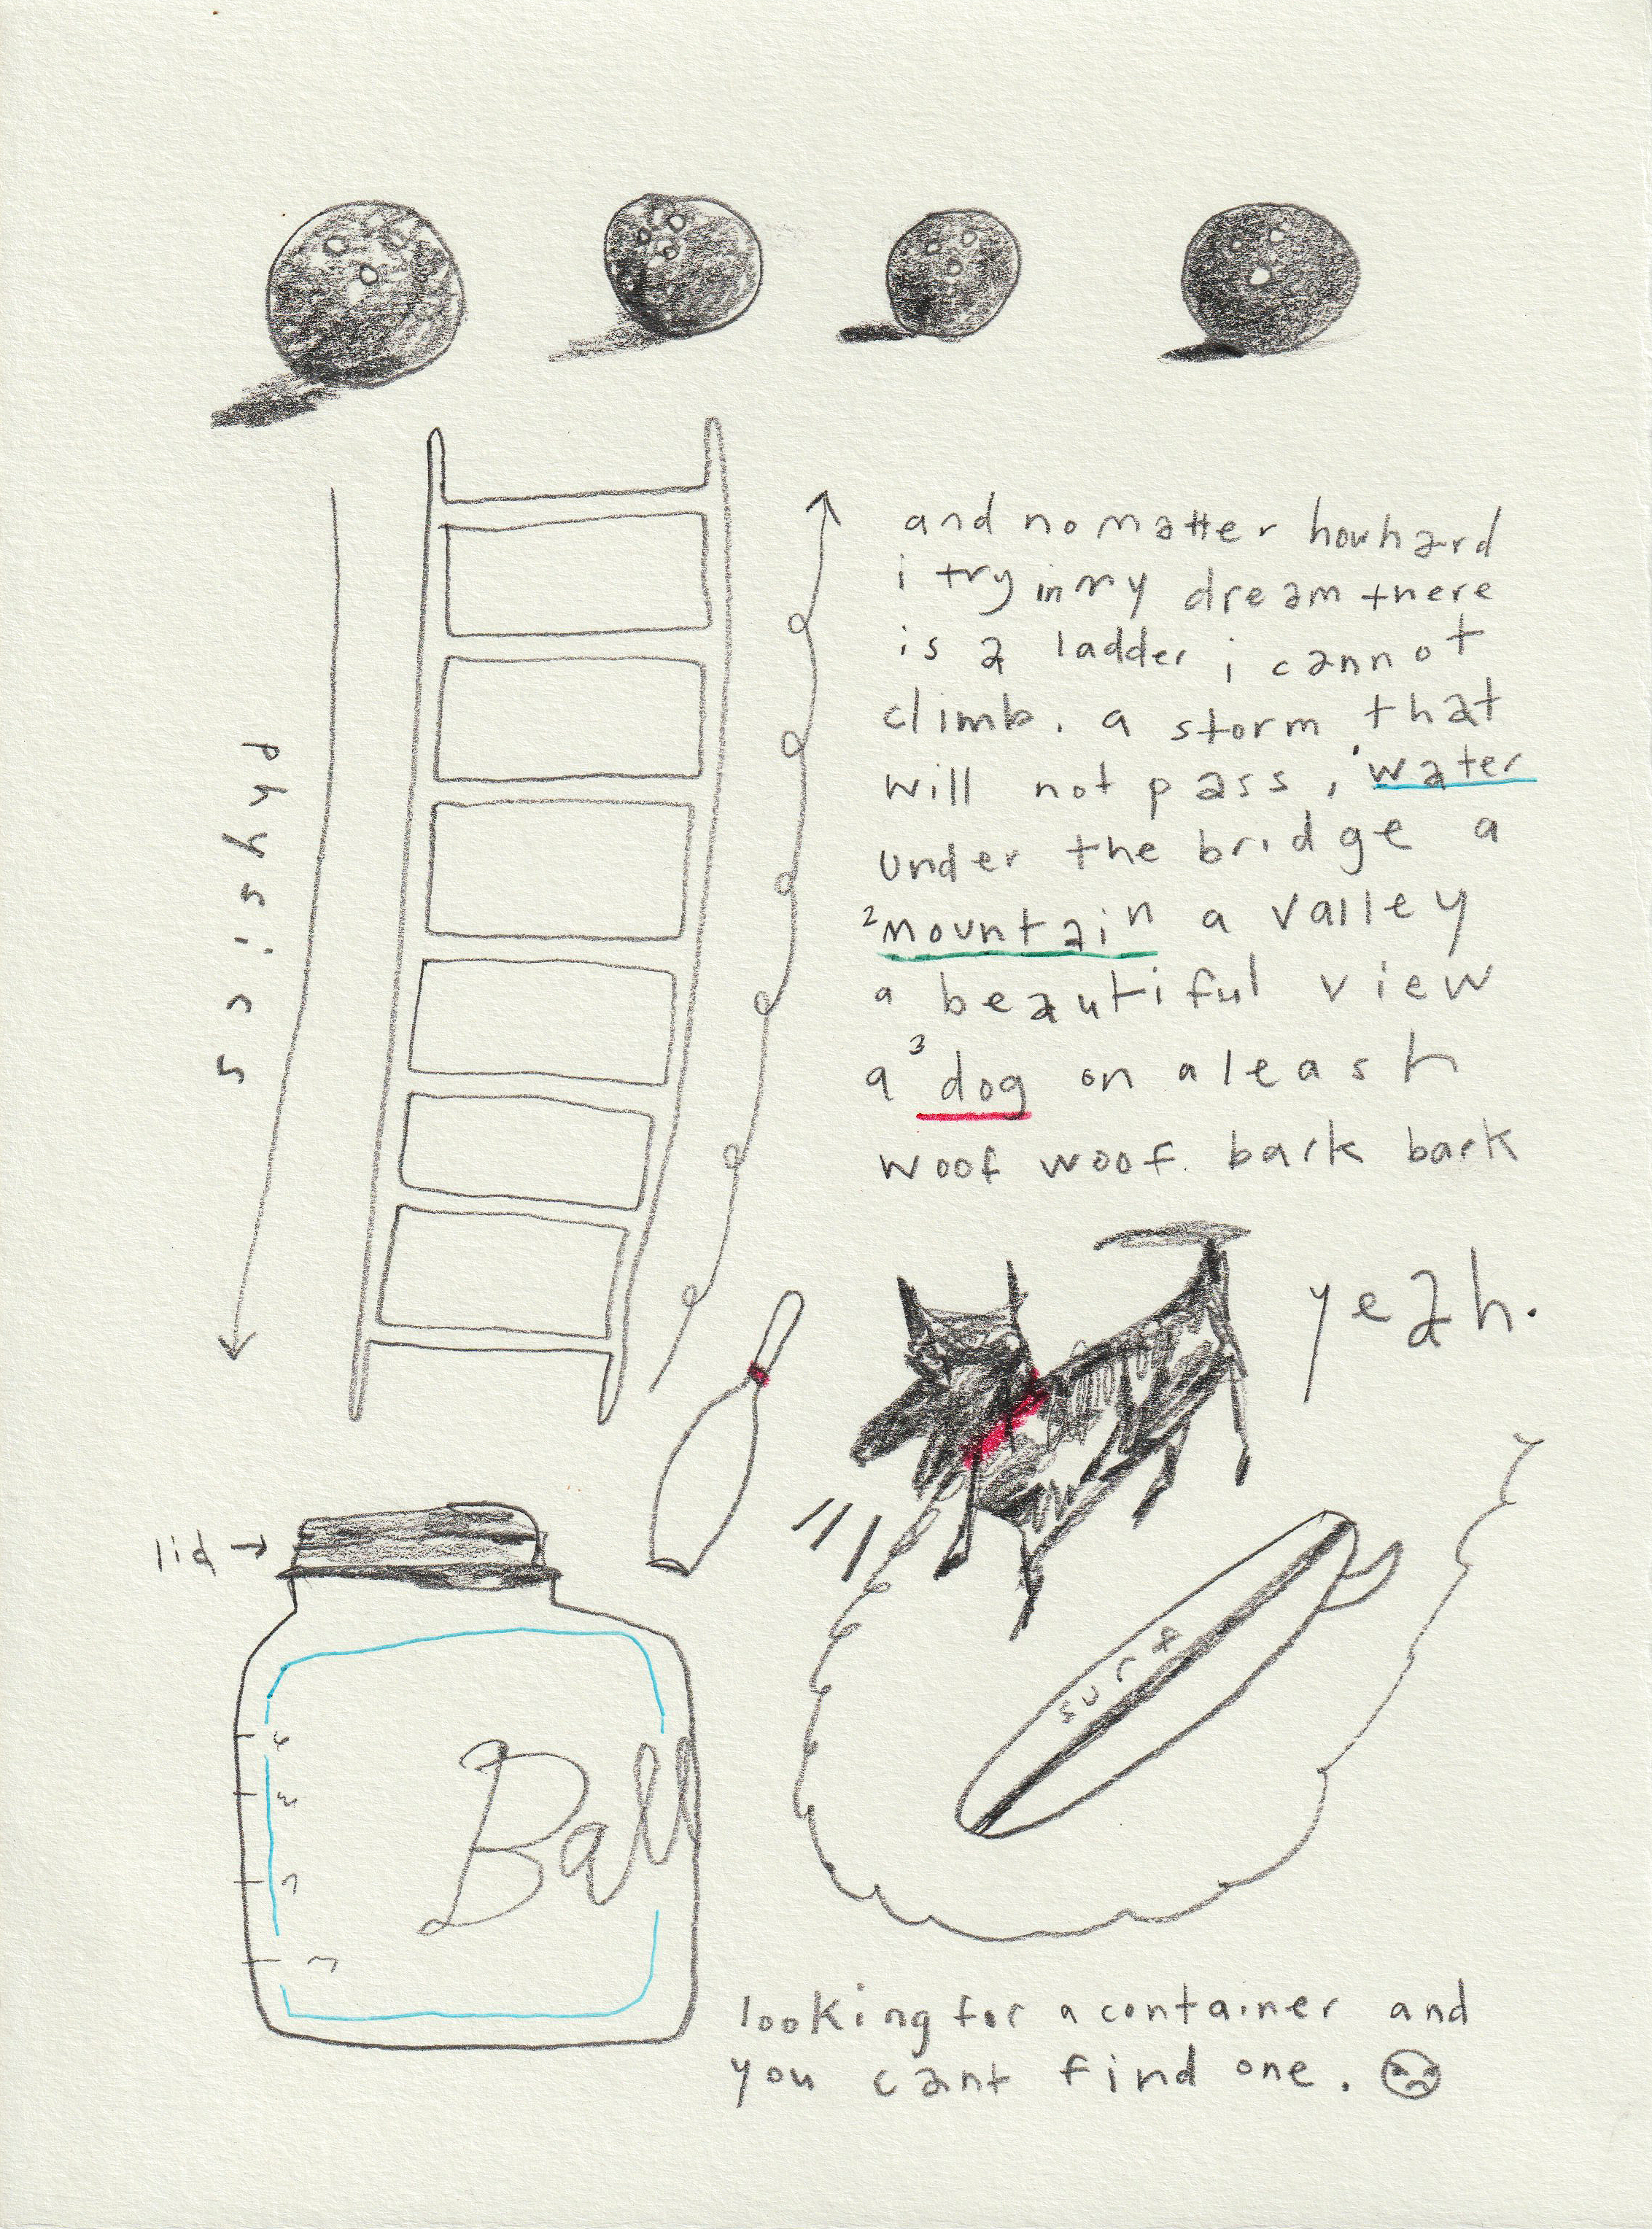 and no matter how hard
i try in my dream there
is a ladder i cannot
climb. a storm that
will not pass, ¹water
under the bridge a
²mountain a valley
a beautiful view
a ³dog on a leash
woof woof bark bark
yeah.
physics
lid →
Ball
4
3
2
1
surf
looking for a container and
you cant find one.